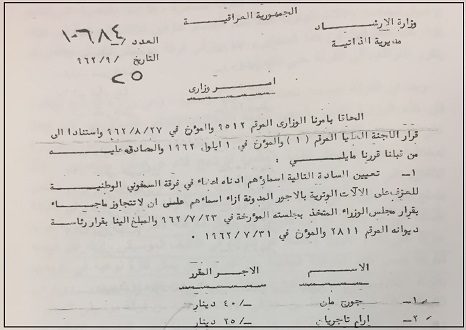 الجمهورية العراقية
وزارة الارشاد
مديرية الذاتية
العدد / ١٠٦٨٤
التاريخ / ٩ / ٩٦٢
٢٥
امر وزارى
الحاقا بامرنا الوزارى المرقم ٩٥١٢ والمؤرخ في ٩٦٢/٨/٢٧ واستنادا الى
قرار اللجنة العليا المرقم ( ١ ) والمؤرخ في ١ ايلول ١٩٦٢ والمصادق عليه
من قبلنا قررنا مايلي :
١- تعيين السادة التالية اسماؤهم ادناه اعضاء في فرقة السمفوني الوطنية
للعزف على الالات الوترية بالاجور المدونة ازاء اسماءهم على ان لاتتجاوز ماجاء
بقرار مجلس الوزراء المتخذ بجلسته المؤرخة في ٩٦٢/٧/٢٣ والمبلغ الينا بقرار رئاسة
ديوانه المرقم ٢٨١١ والمؤرخ في ١٩٦٢/٧/٣١ ٠
الاسم الاجر المقرر
١- جورج مان ٤٠/- دينار
٢- ارام تاجريان ٢٥/- دينار